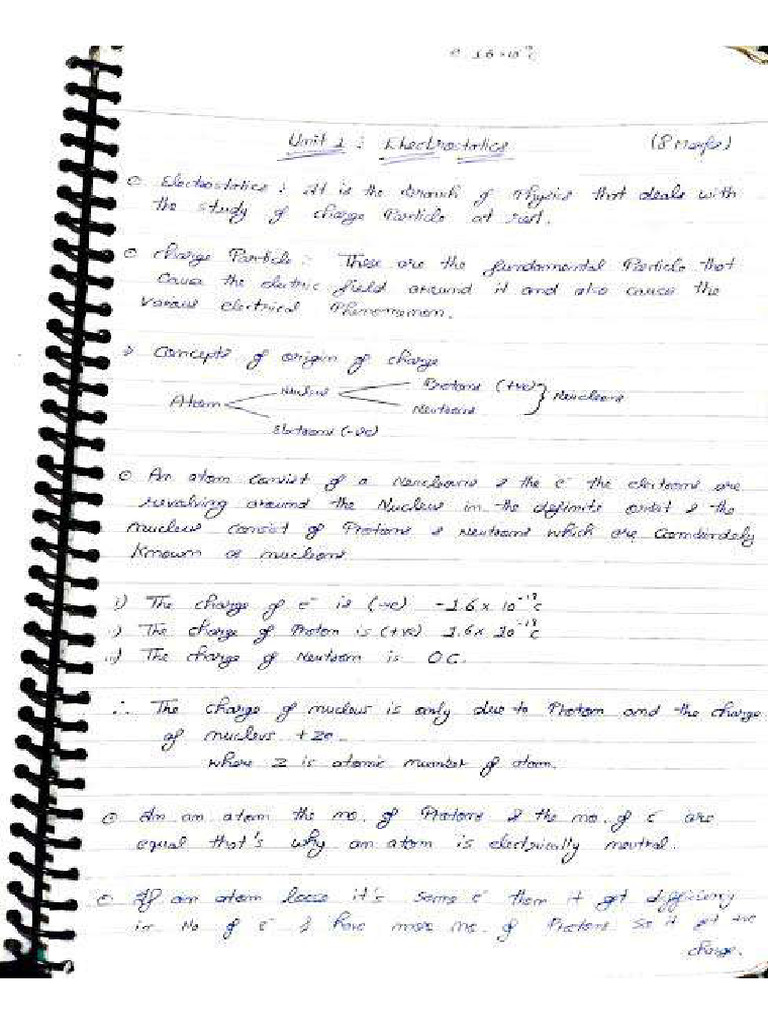 e 1.6 × 10⁻¹⁹C
Unit 1 : Electrostatics (8 Marks)
Electrostatics : It is the Branch of Physics that deals with
the study of charge Particle at rest.
Charge Particle :- These are the fundamental Particle that
caus the electric field around it and also cause the
various electrical Phenomenon.
Concepts of origin of charge
Atom
Nucleus
Protons (+ve)
Neutrons
Nucleons
Electrons (-ve)
An atom consist of a & the e⁻ the electrons are
revolving around the Nucleus in the definite orbit & the
nucleus consist of Protons & Neutrons which are Combindely
Known as nucleons
i) The charge of e⁻ is (-ve) -1.6 × 10⁻¹⁹C
The charge of Proton is (+ve) 1.6 × 10⁻¹⁹C
The charge of Neutron is 0 C.
∴ The charge of nucleus is only due to Proton and the charge
of nucleus +Ze.
where Z is atomic number of atom.
In an atom the no. of Protons & the no. of e⁻ are
equal that's why an atom is electrically neutral.
If an atom loose it's some e⁻ then it get difficiency
in No of e⁻ & have more no. of Protons so it get +ve
charge.